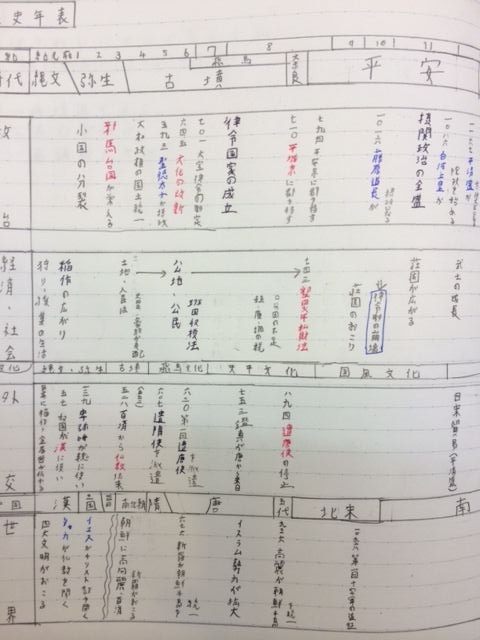 史年表
紀元前 1 2 3 4 5 6 7 8 9 10 11
時代 縄文 弥生 古墳 飛鳥 奈良 平安
小国の分裂
邪馬台国が栄える
大和政権の国土統一
五九三 聖徳太子が摂政
六四五 大化の改新
七〇一 大宝律令の制定
律令国家の成立
七一〇 平城京に都を移す
七九四 平安京に都を移す
一〇一六 藤原道長が摂政になる
摂関政治の全盛
一〇八六 白河上皇が院政を始める
一一六七 平清盛が
経済・社会
狩り・漁・採集の生活
稲作の広がり
土地・人民
公地・公民
班田収授法
租・庸・調の税
口分田の不足
七四三 墾田永年私財法
荘園のおこり
律令制の崩壊
荘園が広がる
武士の成長
文化 縄文・弥生 古墳 飛鳥文化 天平文化 国風文化
五七 奴国が漢に使い
二三九 卑弥呼が魏に使い
五三八 百済から仏教伝来
六〇七 遣隋使を派遣
六三〇 第一回遣唐使を派遣
七五三 鑑真が唐から来日
八九四 遣唐使の停止
日宋貿易
漢 三国 晋 南北朝 隋 唐 五代 北宋 南
世界
四大文明がおこる
シャカが仏教を開く
イエスがキリスト教を開く
朝鮮に高句麗・百済・新羅がおこる
六七六 新羅が朝鮮半島を統一
イスラム勢力が拡大
九三六 高麗が朝鮮半島を統一
一〇九六 第一回十字軍の遠征